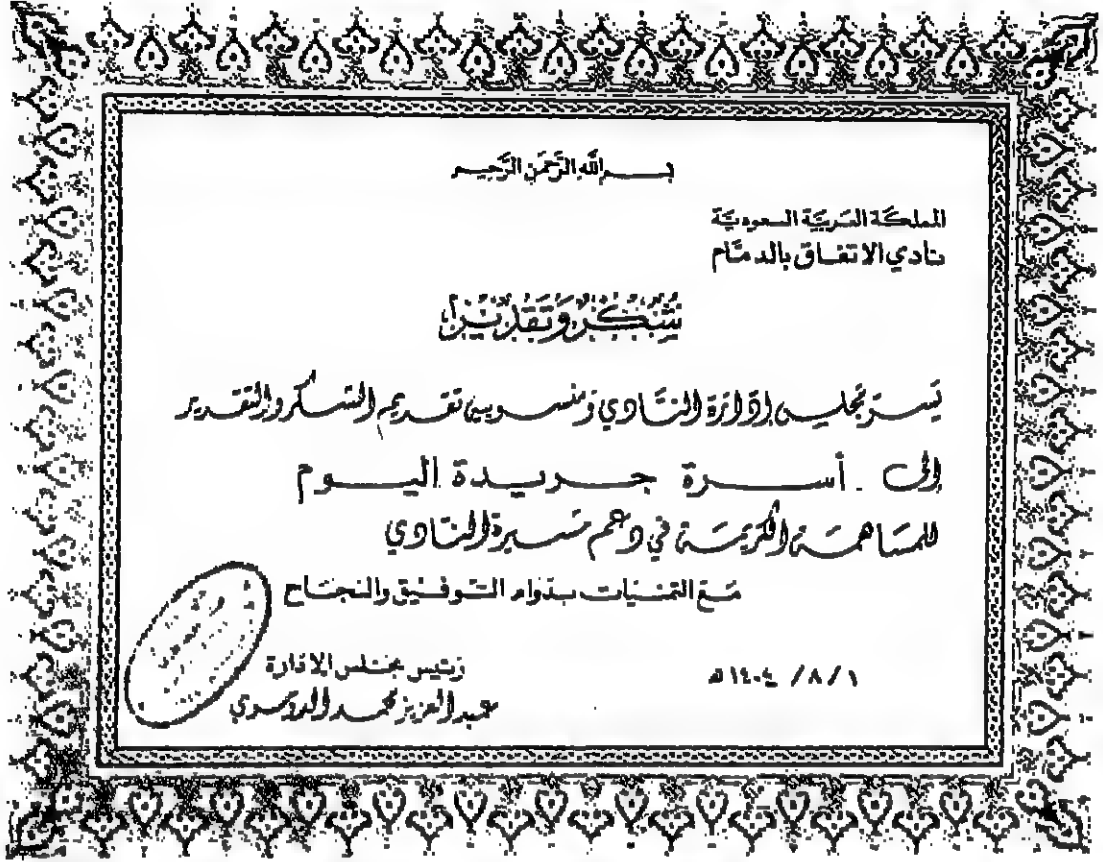 بسم الله الرحمن الرحيم
المملكة العربية السعودية
نادي الاتفاق بالدمام
شكر وتقدير
يسر مجلس إدارة النادي ومنسوبيه تقديم الشكر والتقدير
إلى . أسرة جريدة اليوم
للمساهمة الكريمة في دعم مسيرة النادي
مع التمنيات بدوام التوفيق والنجاح
١ / ٨ / ١٤٠٤ هـ
رئيس مجلس الادارة
عبد العزيز محمد الدوسري